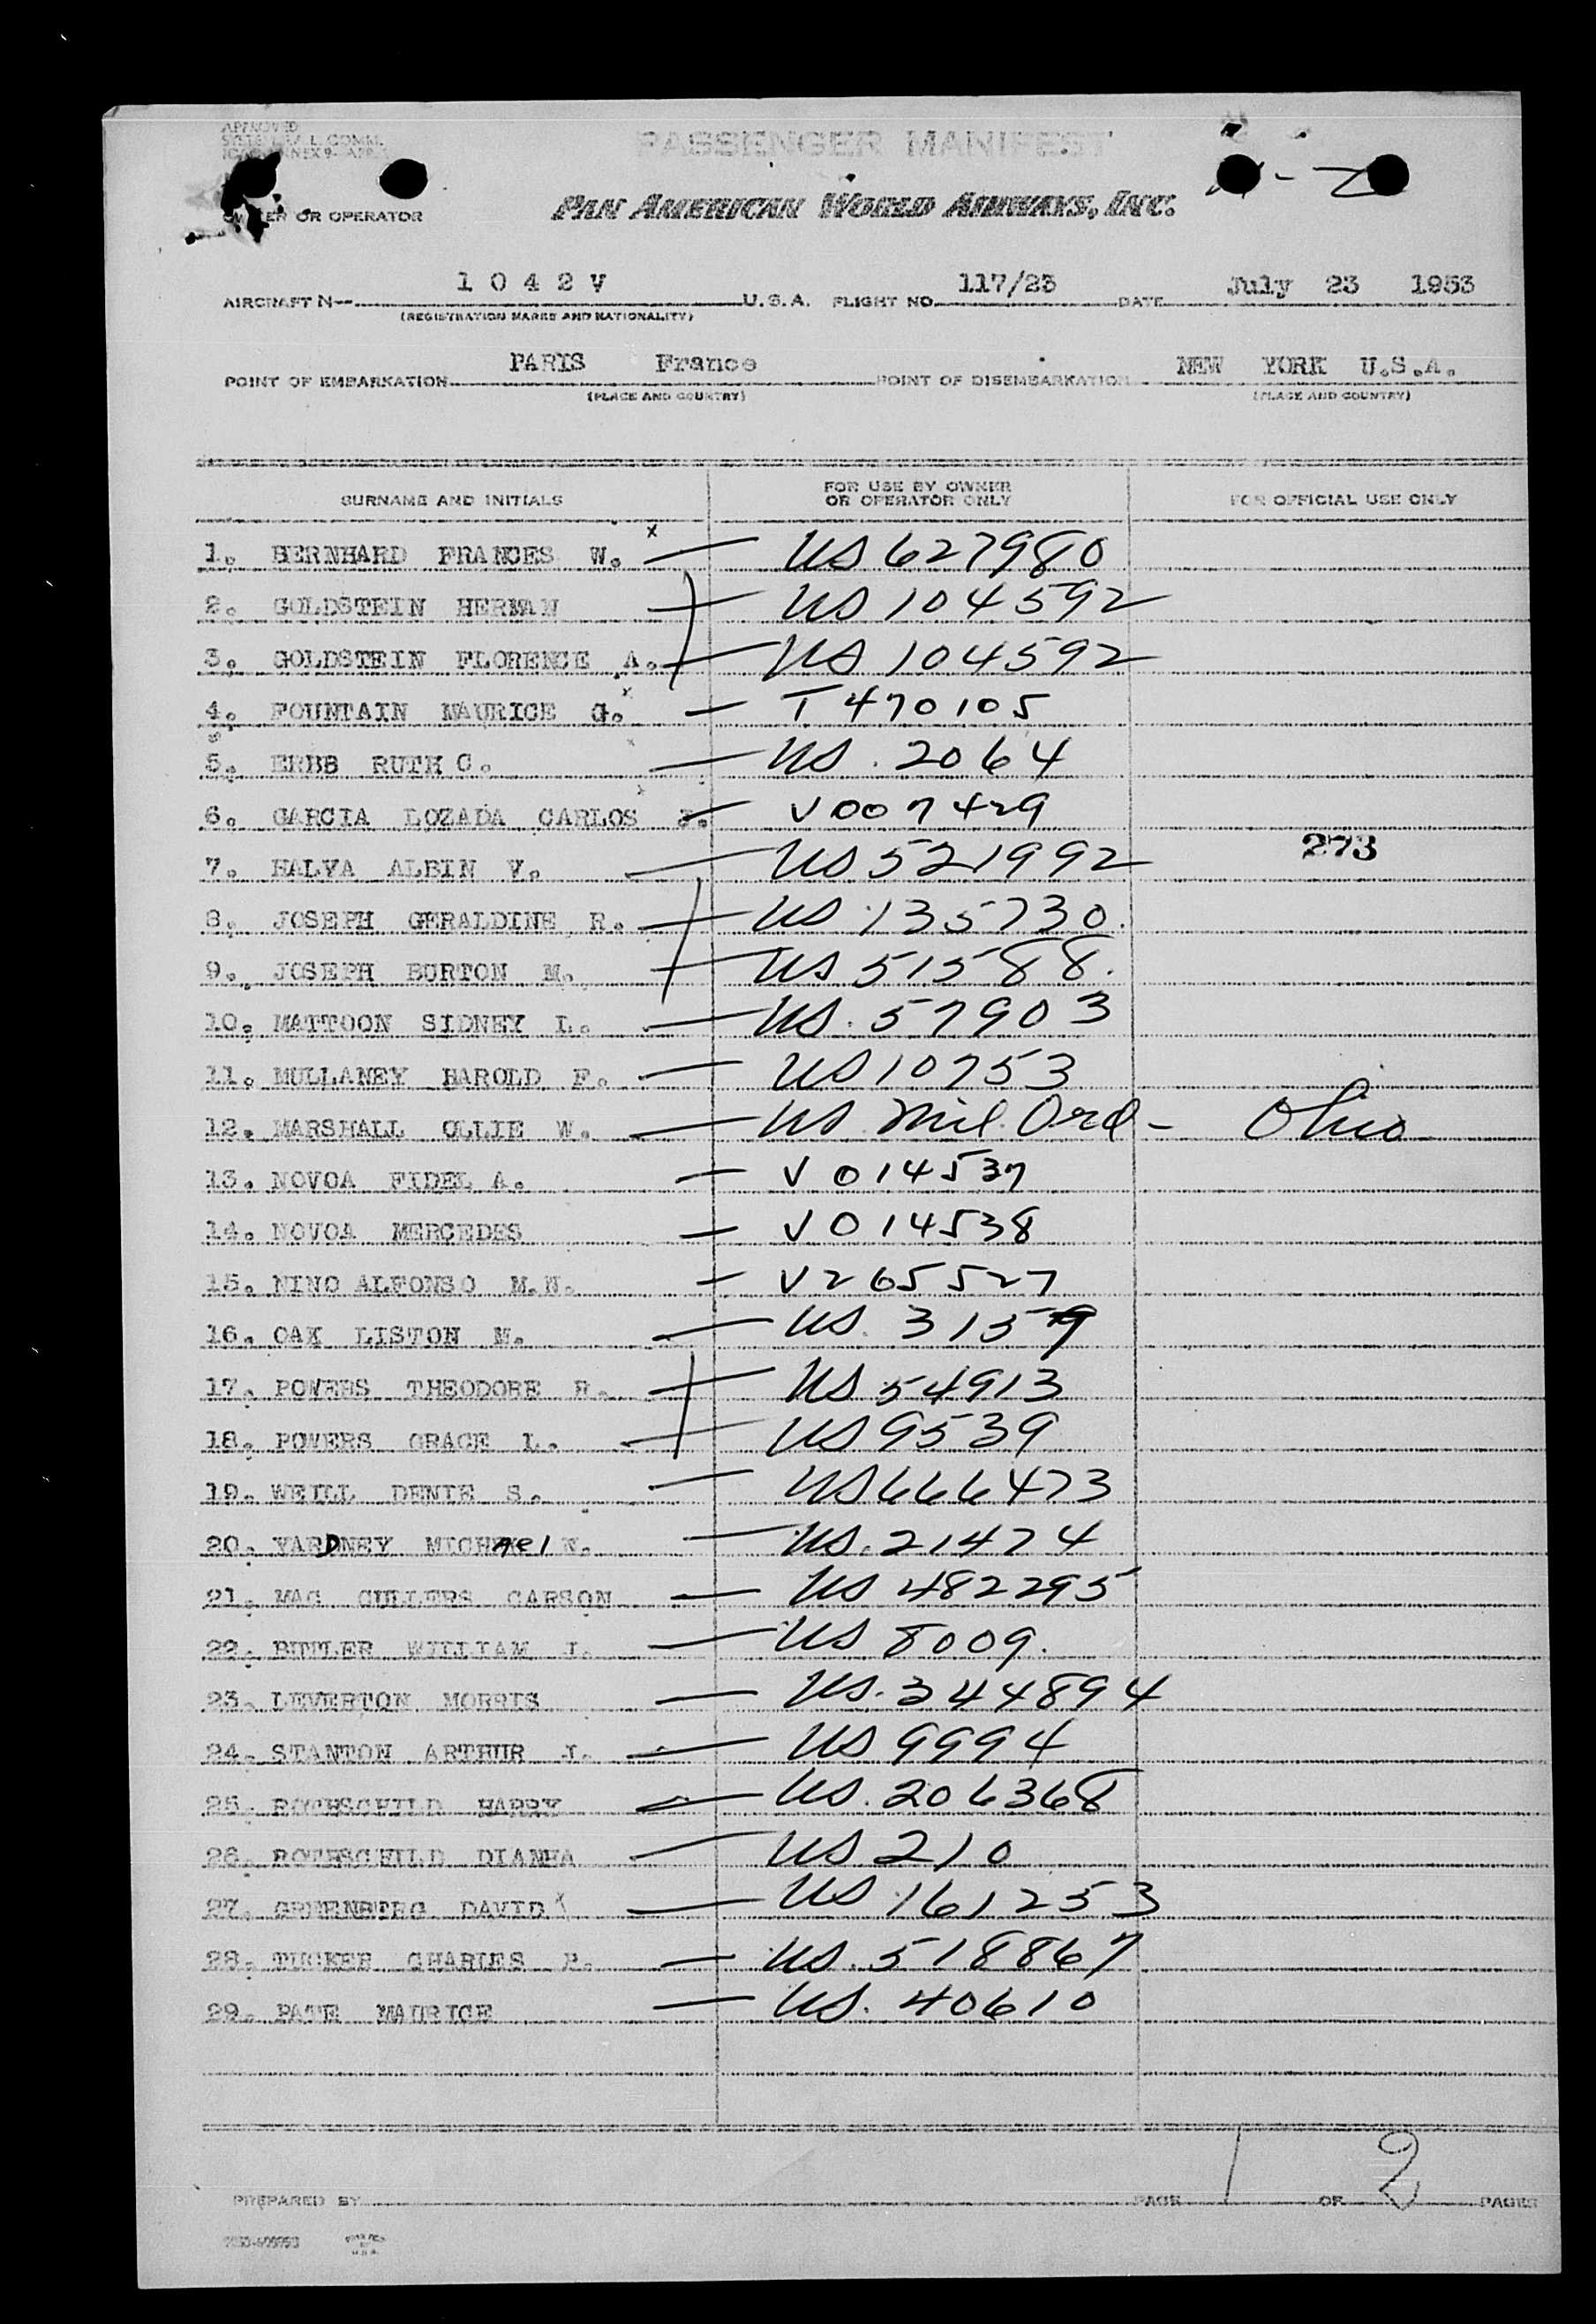 APPROVED
PASSENGER MANIFEST
OWNER OR OPERATOR
PAN AMERICAN WORLD AIRWAYS, INC.
AIRCRAFT N-- 1 0 4 2 V U.S.A. FLIGHT NO. 117/23 DATE July 23 1953
(REGISTRATION MARKS AND NATIONALITY)
POINT OF EMBARKATION PARIS France POINT OF DISEMBARKATION NEW YORK U.S.A.
(PLACE AND COUNTRY) (PLACE AND COUNTRY)
SURNAME AND INITIALS FOR USE BY OWNER OR OPERATOR ONLY FOR OFFICIAL USE ONLY
1. BERNHARD FRANCES W. x — US 627980
2. GOLDSTEIN HERMAN — US 104592
3. GOLDSTEIN FLORENCE A. — US 104592
4. FOUNTAIN MAURICE G. x — T 470105
5. ERBB RUTH C. x — US. 2064
6. GARCIA LOZADA CARLOS J. x — V 007429
273
7. HALVA ALBIN V. — US 521992
8. JOSEPH GERALDINE R. — US 135730.
9. JOSEPH BURTON M. — US 51588.
10. MATTOON SIDNEY L. — US. 57903
11. MULLANEY HAROLD F. — US 10753
12. MARSHALL OLLIE W. — US Mil. Ord - Ohio
13. NOVOA FIDEL A. — V 014537
14. NOVOA MERCEDES — V 014538
15. NINO ALFONSO M.N. — V 265527
16. OAK LISTON M. — US. 3159
17. POWERS THEODORE R. — US 54913
18. POWERS GRACE L. — US 9539
19. WEILL DENIE S. — US 666473
20. YARDNEY MICHAel N. — US. 21474
21. MAC CULLERS CARSON — US 482295
22. BITTLER WILLIAM J. — US 8009.
23. LEVERTON MORRIS — US. 344894
24. STANTON ARTHUR J. — US 9994
25. ROTHSCHILD HARRY — US. 206368
26. ROTHSCHILD DIANHA — US 210
27. GREENBERG DAVID x — US 161253
28. TUCKER CHARLES P. — US. 518867
29. PATE MAURICE — US. 40610
PREPARED BY PAGE 1 OF 2 PAGES